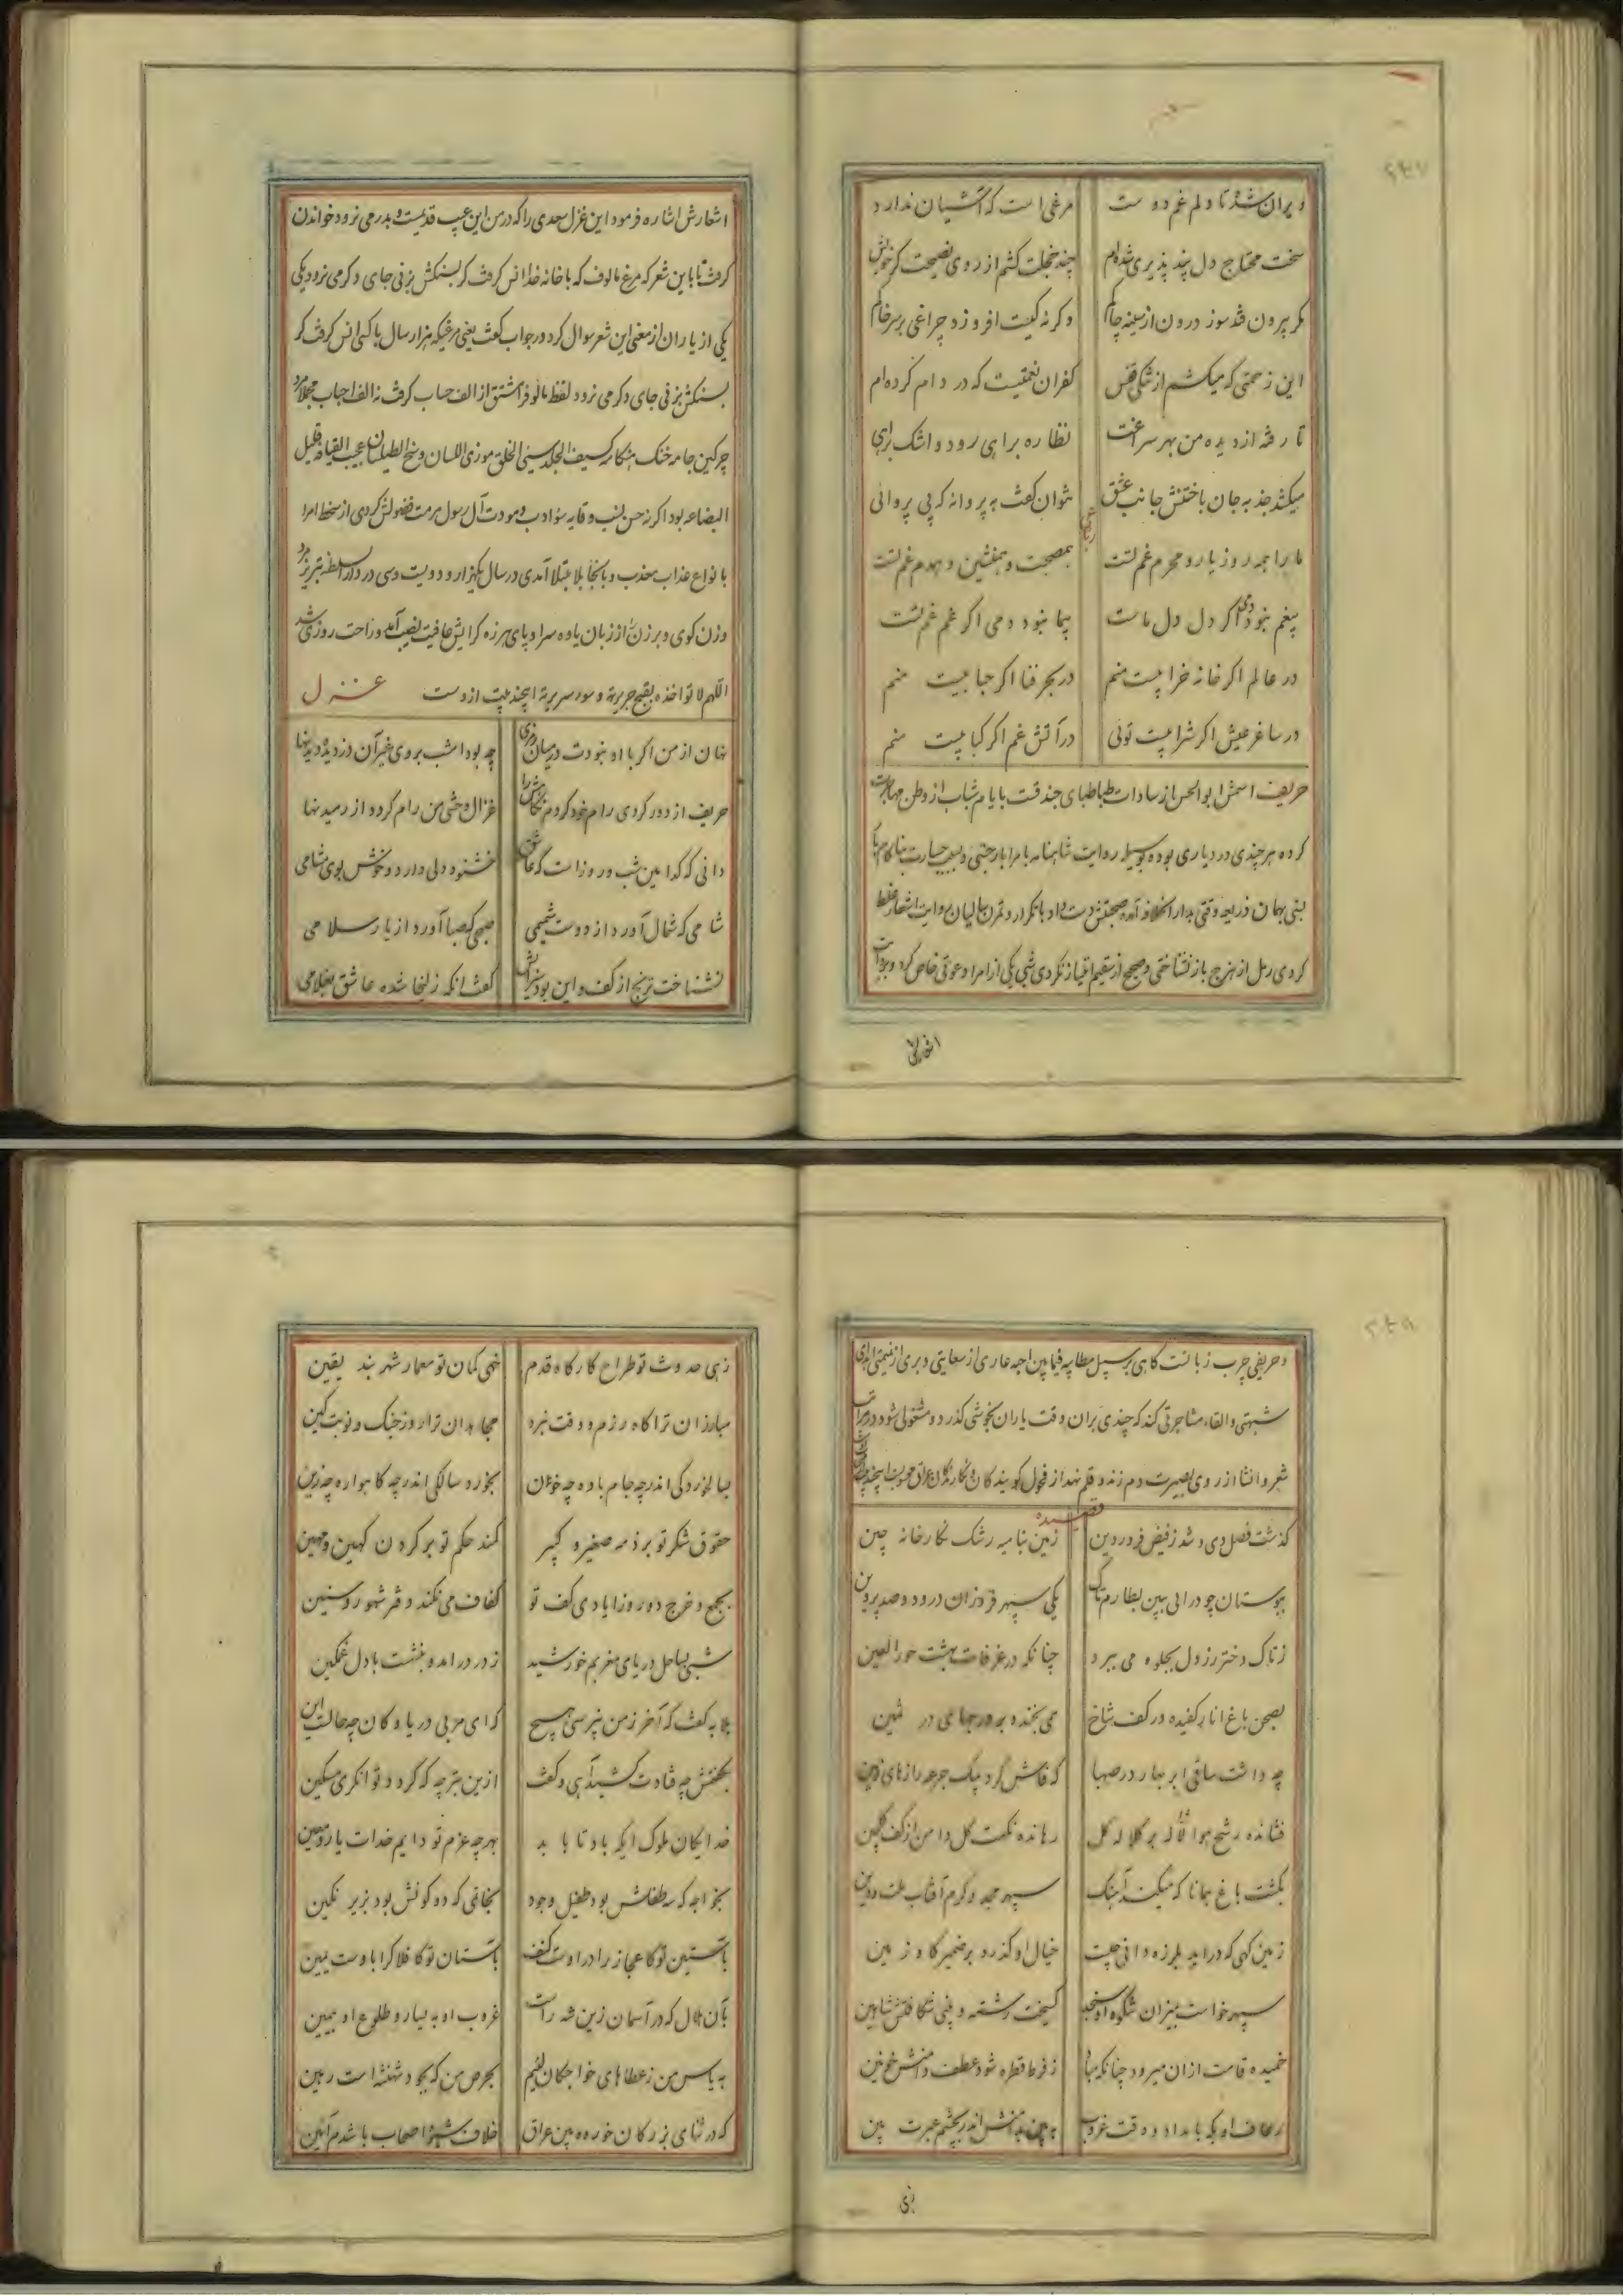 ویران شد تا دلم غم دوست مرغی است که آشیان ندارد
سخت محتاج دل پند پذیری شده‌ام چند خجلت کشم از روی نصیحت گر خویش
مگر برون فتد سوز درون از سینه چاکم وگرنه کیست افروزد چراغی بر سر خاکم
این زحمتی که میکشم از تنگی قفس کفران نعمتیست که در دام کرده‌ام
تا رفته از دیده من بهر سراغت نظاره براهی رود و اشک براهی
میکشد جذبه جان باختنش جانب عشق نتوان گفت به پروانه که بی پروائی
رباعی
ما را همه روز یار و محرم غم تست هم‌صحبت و همنشین و همدم غم تست
بیغم نبود دمی اگر دل دل ماست بیما نبود دمی اگر غم غم تست
در عالم اگر خانه خرابیست منم در بحر فنا اگر حبابیست منم
در ساغر عیش اگر شرابیست توئی در آتش غم اگر کبابیست منم
حریف اسمش ابوالحسن از سادات طباطبای جندقست بایام شباب از وطن مهاجرت
کرده هر چندی در دیاری بوده بوسیله روایت شاهنامه با امرا بار جستی و
بهمان ذریعه وقتی بدار الخلافه آمده صحبتش دست داد با تکرار و تمرن سالیان روایت اشعار غلط
کردی رمل از هزج باز نشناختی و صحیح از سقیم امتیاز نکردی شبی یکی از امرا دعوتی خاص کرد و
اشعارش
اشعارش اشاره فرمود این غزل سعدی را که در من این عیب قدیمست و بدر می نرود خواندن
گرفت تا باین شعر که مرغ مالوف که با خانه خدا انس گرفت گر بسنگش بزنی جای دگر می نرود یکی
یکی از یاران از معنی این شعر سوال کرد در جواب گفت یعنی مرغیکه هزار سال با کسی انس گرفت گر
بسنگش بزنی جای دگر می نرود لفظ مالوف را مشتق از الف حساب گرفت نه الف اجاب مجملا مرد
چرکین جامه خنک هنگامه کسیف الجلد سیئ الخلق موذی اللسان وسخ الطیلسان عجیب القیافه قلیل
البضاعه بود اگر نه حسن نسب وقایه سؤ ادب و مودت آل رسول مرمت فضولش کردی از سخط امرا
با نواع عذاب معذب و بانحاء بلا مبتلا آمدی در سال یکهزار و دویست و سی در دار السلطنه تبریز مرد
وزن کوی و برزن را از زبان یاوه سرا و پای هرزه گرایش عافیت نصیب آمد و راحت روزی شد
اللهم لا تواخذه بقبیح جریرته و سوء سریرته این چند بیت ازوست غزل
نهان از من اگر با او نبودت در میان رمزی چه بود امشب بروی غیر آن دزدیده دیدنها
حریف از دور گردی رام خود کردم نگارش را غزال وحشی من رام گردد از رمیدنها
دانی که کدامین شب و روز است که عاشق خشنود دلی دارد و خوش بوی مشامی
شامی که شمال آورد از دوست شمیمی صبحی که صبا آورد از یار سلامی
نشناخت ترنج از کف و این بود سزایش گفت آنکه زلیخا شده عاشق بغلامی
و حریفی چرب زبانست گاهی بر سبیل مطایبه فیما بین احبه عاری از سعایتی و بری از نمیمتی
شبهتی و القاء مشاجرتی کند که چندی بران وقت یاران بخوشی گذرد و مشغولی شود در مراتب
شعر و انشا از روی بصیرت دم زند و قلم نهد از فحول گویندگان و نگارندگان عراق محسوبست این چند
قصیده
گذشت فصل دی و شد ز فیض فروردین زمین بنامیه رشک نگارخانه چین
ببوستان چو درائی ببین بطارم تاک یکی سپهر فروزان درو دو صد پروین
ز تاک دختر رز دل بجلوه می ببرد چنانکه در غرفات بهشت حور العین
بصحن باغ انار کفیده در کف شاخ می بخنده برد رجهای در ثمین
چه داشت ساقی ابر بهار در صهبا که فاش گرد بیک جرعه رازهای زمین
فشانده رشح هوا ژاله بر کلاله گل رهانده نکهت گل دامن از کف گلچین
بگشت باغ همانا که میکند آهنگ سپهر مجد و کرم آفتاب ملت و دین
زمین گهی که دراید بلرزه دانی چیست خیال او گذرد بر ضمیر گاو زمین
سپهر خواست بمیزان شکوه او سنجد گسیخت رشته و پنی شکافتش شاهین
خمیده قامت ازان میرود چنانکه ز فرط قطره شود عطف دامنش
رعاف او که بامداد و وقت غروب به بین بدامنش اندر بچشم عبرت بین
زهی
زهی حدوث تو طراح کارگاه قدم خهی کمان تو معمار شهر بند یقین
مبارزان ترا گاه رزم و وقت نبرد مجاهدان ترا روز جنگ و نوبت کین
بسالخوردگی اندر چه جام باده چه خون بخورد سالگی اندر چه گاهواره چه زین
حقوق شکر تو بر ذمه صغیر و کبیر کمند حکم تو بر گردن کهین و مهین
بجمع و خرج دو روز ایادی کف تو کفاف می نکند دفتر شهور و سنین
شبی بساحل دریای مغربم خورشید ز در درامد و بنشست با دل غمگین
بلابه گفت که آخر ز من نپرسی هیچ که ای مربی دریا و کان چه حالست این
بگفتمش چه فتادت کشید آهی و گفت ازین بتر چه که گردد توانگری مسکین
خدایگان ملوک ایکه باد تا با بد بهر چه عزم تو دایم خدات یار و معین
بخواجه که طفیلش بود طفیل وجود بخاتمی که دو کونش بود بزیر نگین
بآستین تو کاعجاز را در اوست کنف بآستان تو کافلاک را باوست یمین
بآن هلال که در آسمان زین شه راست غروب او به یسار و طلوع او بیمین
به یاس من ز عطاهای خواجگان لئیم بحرص من که بجود شهنشه است رهین
که در ثنای بزرگان خورده بین عراق خلاف شیوه اصحاب باشدم آئین